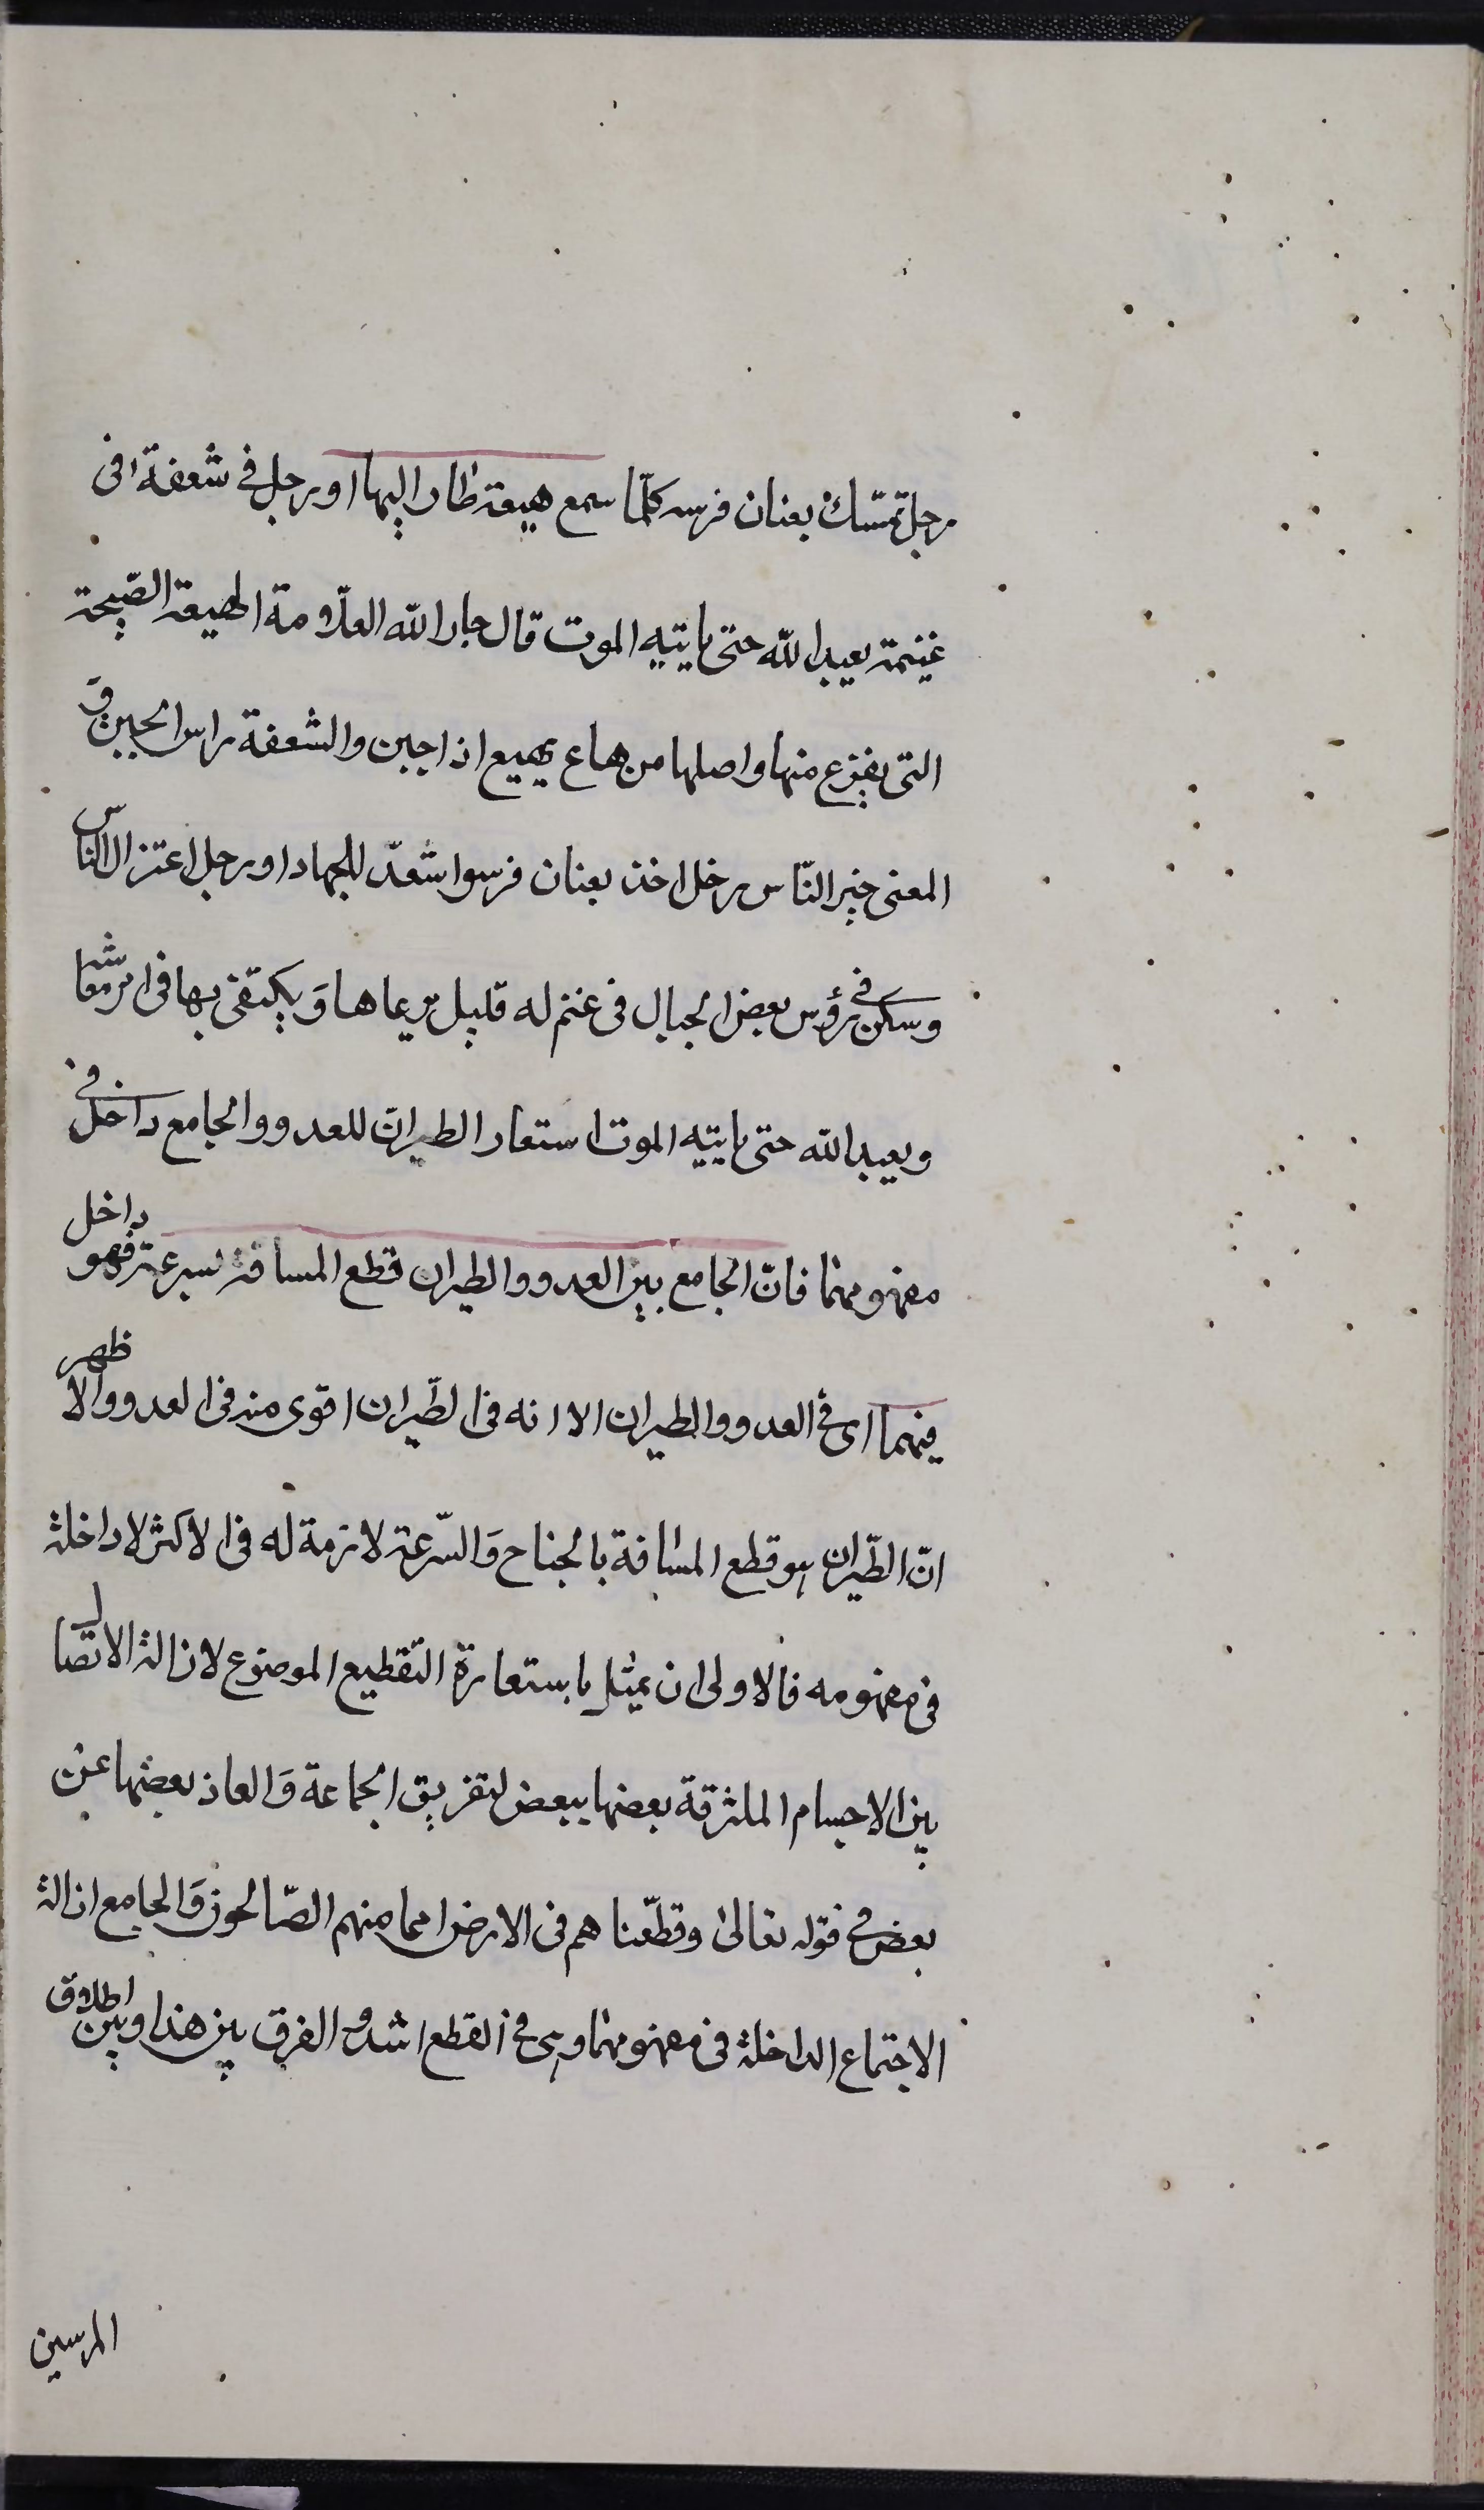 رجل تمسّك بعنان فرسه كلّما سمع هيعة طار اليها او رجل في شعفة افى
غنيمة يعبد الله حتى ياتيه الموت قال جار الله العلّامة الهيعة الصّيحة
التى يفزع منها واصلها من هاع يهيع اذا جبن والشعفة راس الجبل و
المعنى خير النّاس رجل اخذ بعنان فرسه استعدّ للجهاد او رجل اعتزل الناس
وسكن في رؤس بعض الجبال فى غنم له قليل يرعاها وَيكتفى بها فى امر معاشه
ويعبد الله حتى ياتيه الموت استعار الطيران للعدو والجامع داخل في
مفهومهما فانّ الجامع بين العدو والطيران قطع المسافة بسرعة فهو داخل
فيهما اى في العدو والطيران الا انه فى الطّيران اقوى منه فى العدو والاظهر
انّ الطّيران هو قطع المسافة بالجناح وَالسّرعة لازمة له فى الاكثر لا داخلة
فى مفهومه فالاولى ان يمثل باستعارة التقطيع الموضوع لازالة الاتصال
بين الاجسام الملتزقة بعضها ببعض لتفريق الجماعة وَابعاد بعضها عن
بعض في قوله تعالى وقطّعناهم فى الارض امما منهم الصّالحون وَالجامع ازالة
الاجتماع الداخلة فى مفهومهما وهى في القطع اشد والفرق بين هذا وبين اطلاق
المرسين